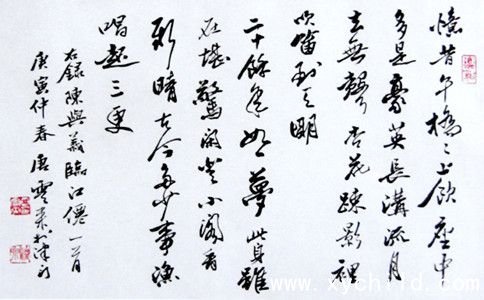 憶昔午橋々上飲座中
多是豪英長溝流月
去無聲杏花疎影裡
吹笛到天明
二十餘年如一夢此身雖
在堪驚閒登小閣看
新晴古今多少事漁
唱起三更
右錄陳與義臨江僊一首
庚寅仲春唐雲來於津門
www.xychild.com